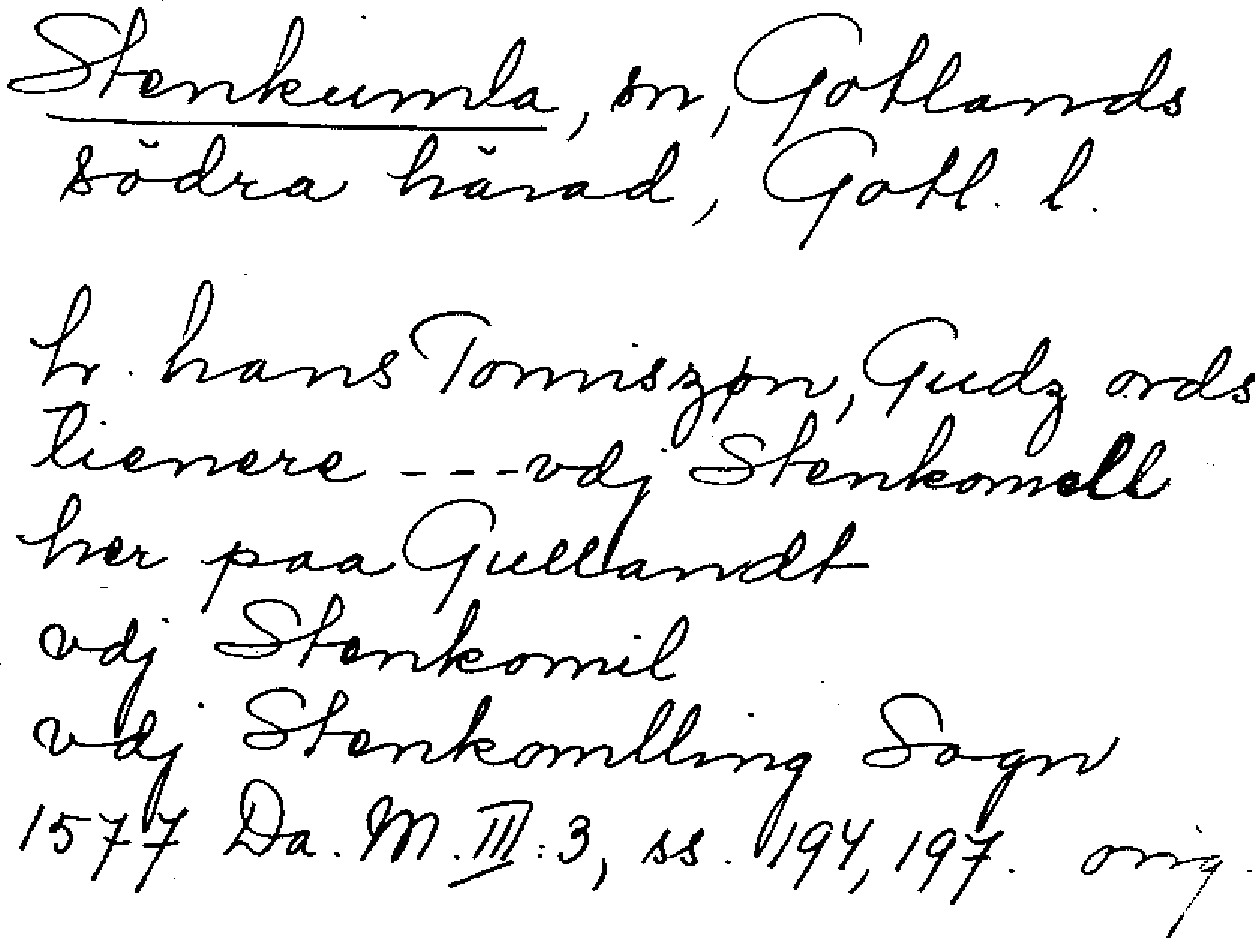 Stenkumla, sn, Gotlands
södra härad, Gotl. l.
hr. hans Tomniszøn, Gudz ords
tienere --- vdj Stenkomell
her paa Gullandt
vdj Stenkomil
vdj Stenkomlling Sogn
1577 Da. M. III: 3, ss. 194, 197. orig.